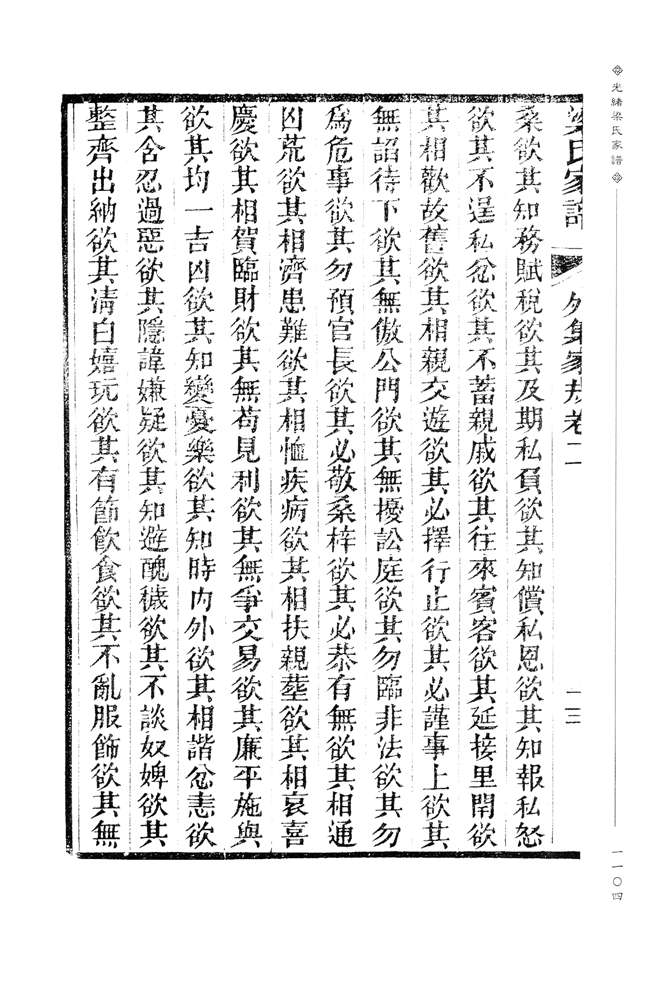 光緒梁氏家譜
一一〇四
梁氏家譜 外集家規卷二 二三
桑欲其知務賦稅欲其及期私負欲其知償私恩欲其知報私怒
欲其不逞私忿欲其不蓄親戚欲其往來賓客欲其延接里閈欲
其相歡故舊欲其相親交遊欲其必擇行止欲其必謹事上欲其
無謟待下欲其無傲公門欲其無擾訟庭欲其勿臨非法欲其勿
爲危事欲其勿預官長欲其必敬桑梓欲其必恭有無欲其相通
凶荒欲其相濟患難欲其相恤疾病欲其相扶親塟欲其相哀喜
慶欲其相賀臨財欲其無苟見利欲其無爭交易欲其廉平施與
欲其均一吉凶欲其知變憂樂欲其知時內外欲其相諧忿恚欲
其含忍過惡欲其隱諱嫌疑欲其知避醜穢欲其不談奴婢欲其
整齊出納欲其淸白嬉玩欲其有節飮食欲其不亂服飾欲其無